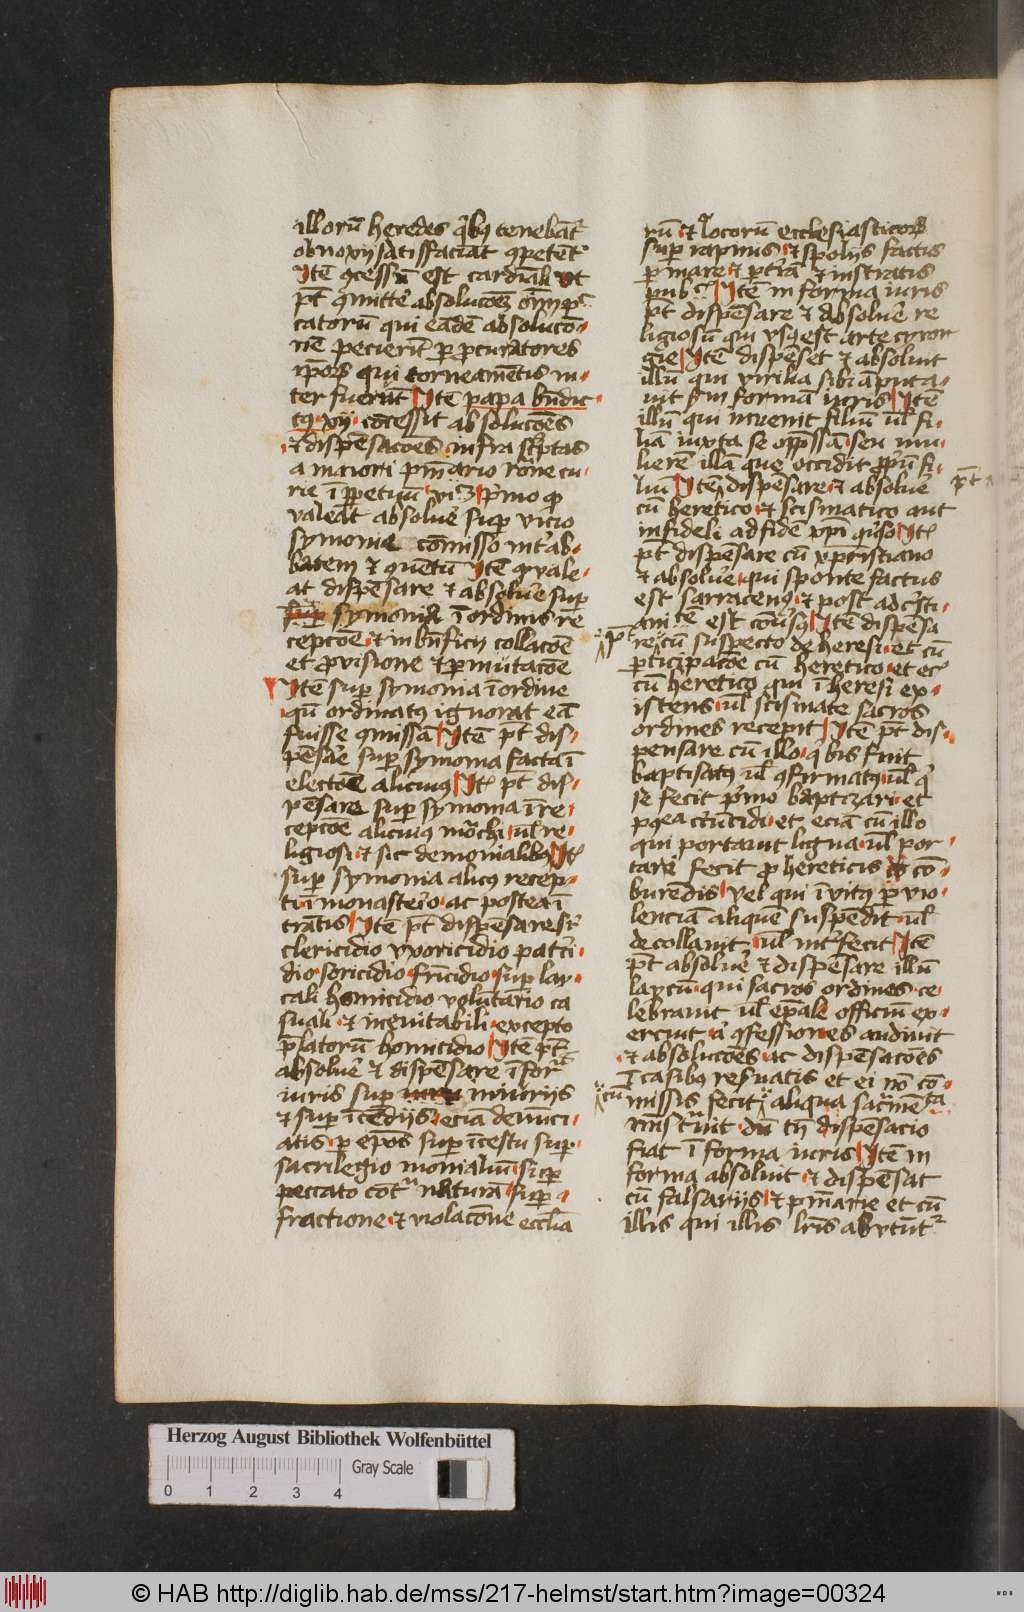 illorū heredes qͥbꝫ tenebāt᷑
obnoxij satisfaciāt ꝯpetēt᷑
Itē ꝯcessū est cardīali vt
pt̄ ꝯmitte᷑ absolucōeꝫ om̄ī pͨ
catorū qui eādē absolucō
nē pecierīt ꝑ ꝓcuratores
ip̄os qui torneamētis in
ter fuerūt Itē papa bn̄dic
tꝰ xij cōcessit absolucōes
⁊ dispēsacōes infra sc̄ptas
a maiori pn̄iario rōne cu
rie ī ꝑpetuū viꝫ pͥmo ꝙ
valeāt absolue᷑ suꝑ vicio
symonie cōmisso int᷑ ab
batem ⁊ ꝯuētū Itē ꝙ vale
at dispēsare ⁊ absolue᷑ suꝑ
symonia ī ordinis re
cepcōe ⁊ in bn̄ficij collacōe
et ꝓvisione ⁊ ꝑmutacōe
Itē suꝑ symonia ī ordine
qn̄ ordinatꝰ ignorat eā
fuisse ꝯmissā Itē pt̄ dis
pēsae᷑ suꝑ symonia facta ī
electōe alicuiꝰ It̄ pt̄ dis
pēsare suꝑ symonia ī re
cepcōe alicuiꝰ mōchi ul̄ re
ligiosi ⁊ sic de monialibꝰ It̄
suꝑ symonia alicꝰ recep
ti ī monaste᷑io ac postea ī
trātis Itē pt̄ dispēsare suꝑ
clericidio vxoricidio patri
dio soricidio fr̄icidio suꝑ lay
cali homicidio volūtario ca
suali ⁊ inevitabili excepto
p̄latorū homicidio Itē pt̄
absolue᷑ ⁊ dispēsare ī forᷓ
iuris suꝑ iniuriis
⁊ suꝑ īcēdijs eciā denūci
atis ꝑ ep̄os suꝑ īcestu suꝑ
sacrilegio monialiū suꝑ
peccato cōtᷓ naturā suꝑ
fractione ⁊ violacōne eccl̄ia
rū ⁊ locorū ecclesiasticoꝝ
suꝑ rapinis ⁊ spolijs factis
ꝑ mare ⁊ ꝑ t᷑rā ⁊ in stratis
pub̄ᶜ Itē in forma iuris
pt̄ dispēsare ⁊ absolue᷑ re
ligiosū qui vsꝰ est arte cyror
gie Itē dispēset ⁊ absoluit
illū qui virilia sibi āputa
uit ẜm formā iuris Itē
illū qui inuenit filiū ul̄ fi
liā iuxta se opp̄ssā seu mu
lierē illā que occidit ꝓp̄ū fi
liū Itē dispēsare ⁊ absolue᷑
cū heretico ⁊ scismatico aut
infideli ad fidē xp̄i ꝯu᷑so It̄
pt̄ dispēsare cū xp̄ristiano
⁊ absolue᷑ qui sponte factus
est sarracenꝰ ⁊ post ad cͥsti
anitē est cōu᷑sꝰ Itē dispēsa
re cū suspecto de heresi et cū
ꝑticipacōe cū heretico et ec̄
cū heretico qui ī heresi ex
istens ul̄ scismate sacros
ordines recepit Itē pt̄ dis
pensare cū illo qͥ bis fuit
baptisatꝰ ul̄ ꝯfirmatꝰ ul̄ qͥ
se fecit pͥmo baptizari et
pꝰea cͥcūcidi et eciā cū illo
qui portauit ligna ul̄ por
tari fecit ꝓ hereticis cō
burēdis vel qui ī vitꝰ ꝑ vio
lenciā aliquē suspēdit ul̄
decollauit ul̄ int᷑fecit Itē
pt̄ absolue᷑ ⁊ dispēsare illū
laycū qui sacros ordines ce
lebrauit ul̄ ep̄ale officiū ex
ercuit ⁊ ꝯfessiones audiuit
⁊ absolucōes ac dispēsacōes
ī casibꝰ resuatis et ei nō cō
missis fecit cū aliqua sacͣmēta
mīstͣuit dū tn̄ dispēsacio
fiat ī forma iuris Itē in
forma absoluit ⁊ dispēsat
cū falsarijs ⁊ pn̄iarie et cū
illis qui illis lr̄is abutūt᷑
pt̄
pt̄
Herzog August Bibliothek Wolfenbüttel
Gray Scale
0 1 2 3 4
© HAB http://diglib.hab.de/mss/217-helmst/start.htm?image=00324